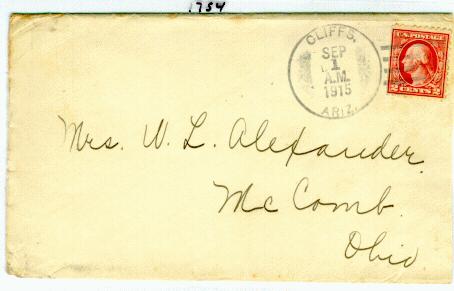 1754
CLIFFS.
SEP
1
A.M.
1915
ARIZ.
U.S. POSTAGE
2 CENTS 2
Mrs. W. L. Alexander.
McComb.
Ohio